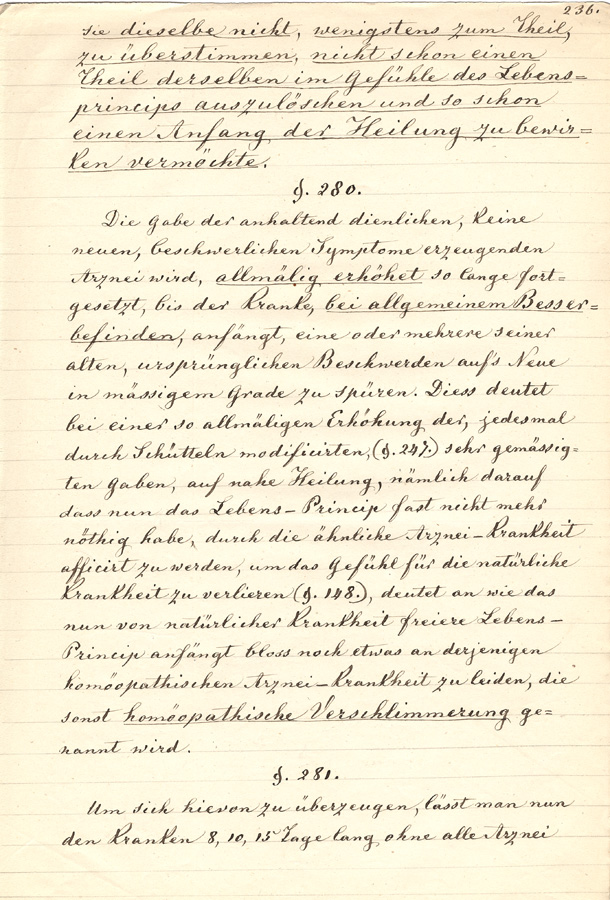 236.
sie dieselbe nicht, wenigstens zum Theil,
zu überstimmen, nicht schon einen
Theil derselben im Gefühle des Lebens=
princips auszulöschen und so schon
einen Anfang der Heilung zu bewir=
ken vermöchte.
§. 280.
Die Gabe der anhaltend dienlichen, keine
neuen, beschwerlichen Symptome erzeugenden
Arznei wird, allmälig erhöhet so lange fort=
gesetzt, bis der Kranke, bei allgemeinem Besser=
befinden, anfängt, eine oder mehrere seiner
alten, ursprünglichen Beschwerden auf's Neue
in mässigem Grade zu spüren. Diess deutet
bei einer so allmäligen Erhöhung der, jedesmal
durch Schütteln modificirten, (§. 247.) sehr gemässig=
ten Gaben, auf nahe Heilung, nämlich darauf
dass nun das Lebens-Princip fast nicht mehr
nöthig habe, durch die ähnliche Arznei-Krankheit
afficirt zu werden, um das Gefühl für die natürliche
Krankheit zu verlieren (§. 148.), deutet an wie das
nun von natürlicher Krankheit freiere Lebens-
Princip anfängt bloss noch etwas an derjenigen
homöopathischen Arznei-Krankheit zu leiden, die
sonst homöopathische Verschlimmerung ge=
nannt wird.
§. 281.
Um sich hievon zu überzeugen, lässt man nun
den Kranken 8, 10, 15 Tage lang ohne alle Arznei